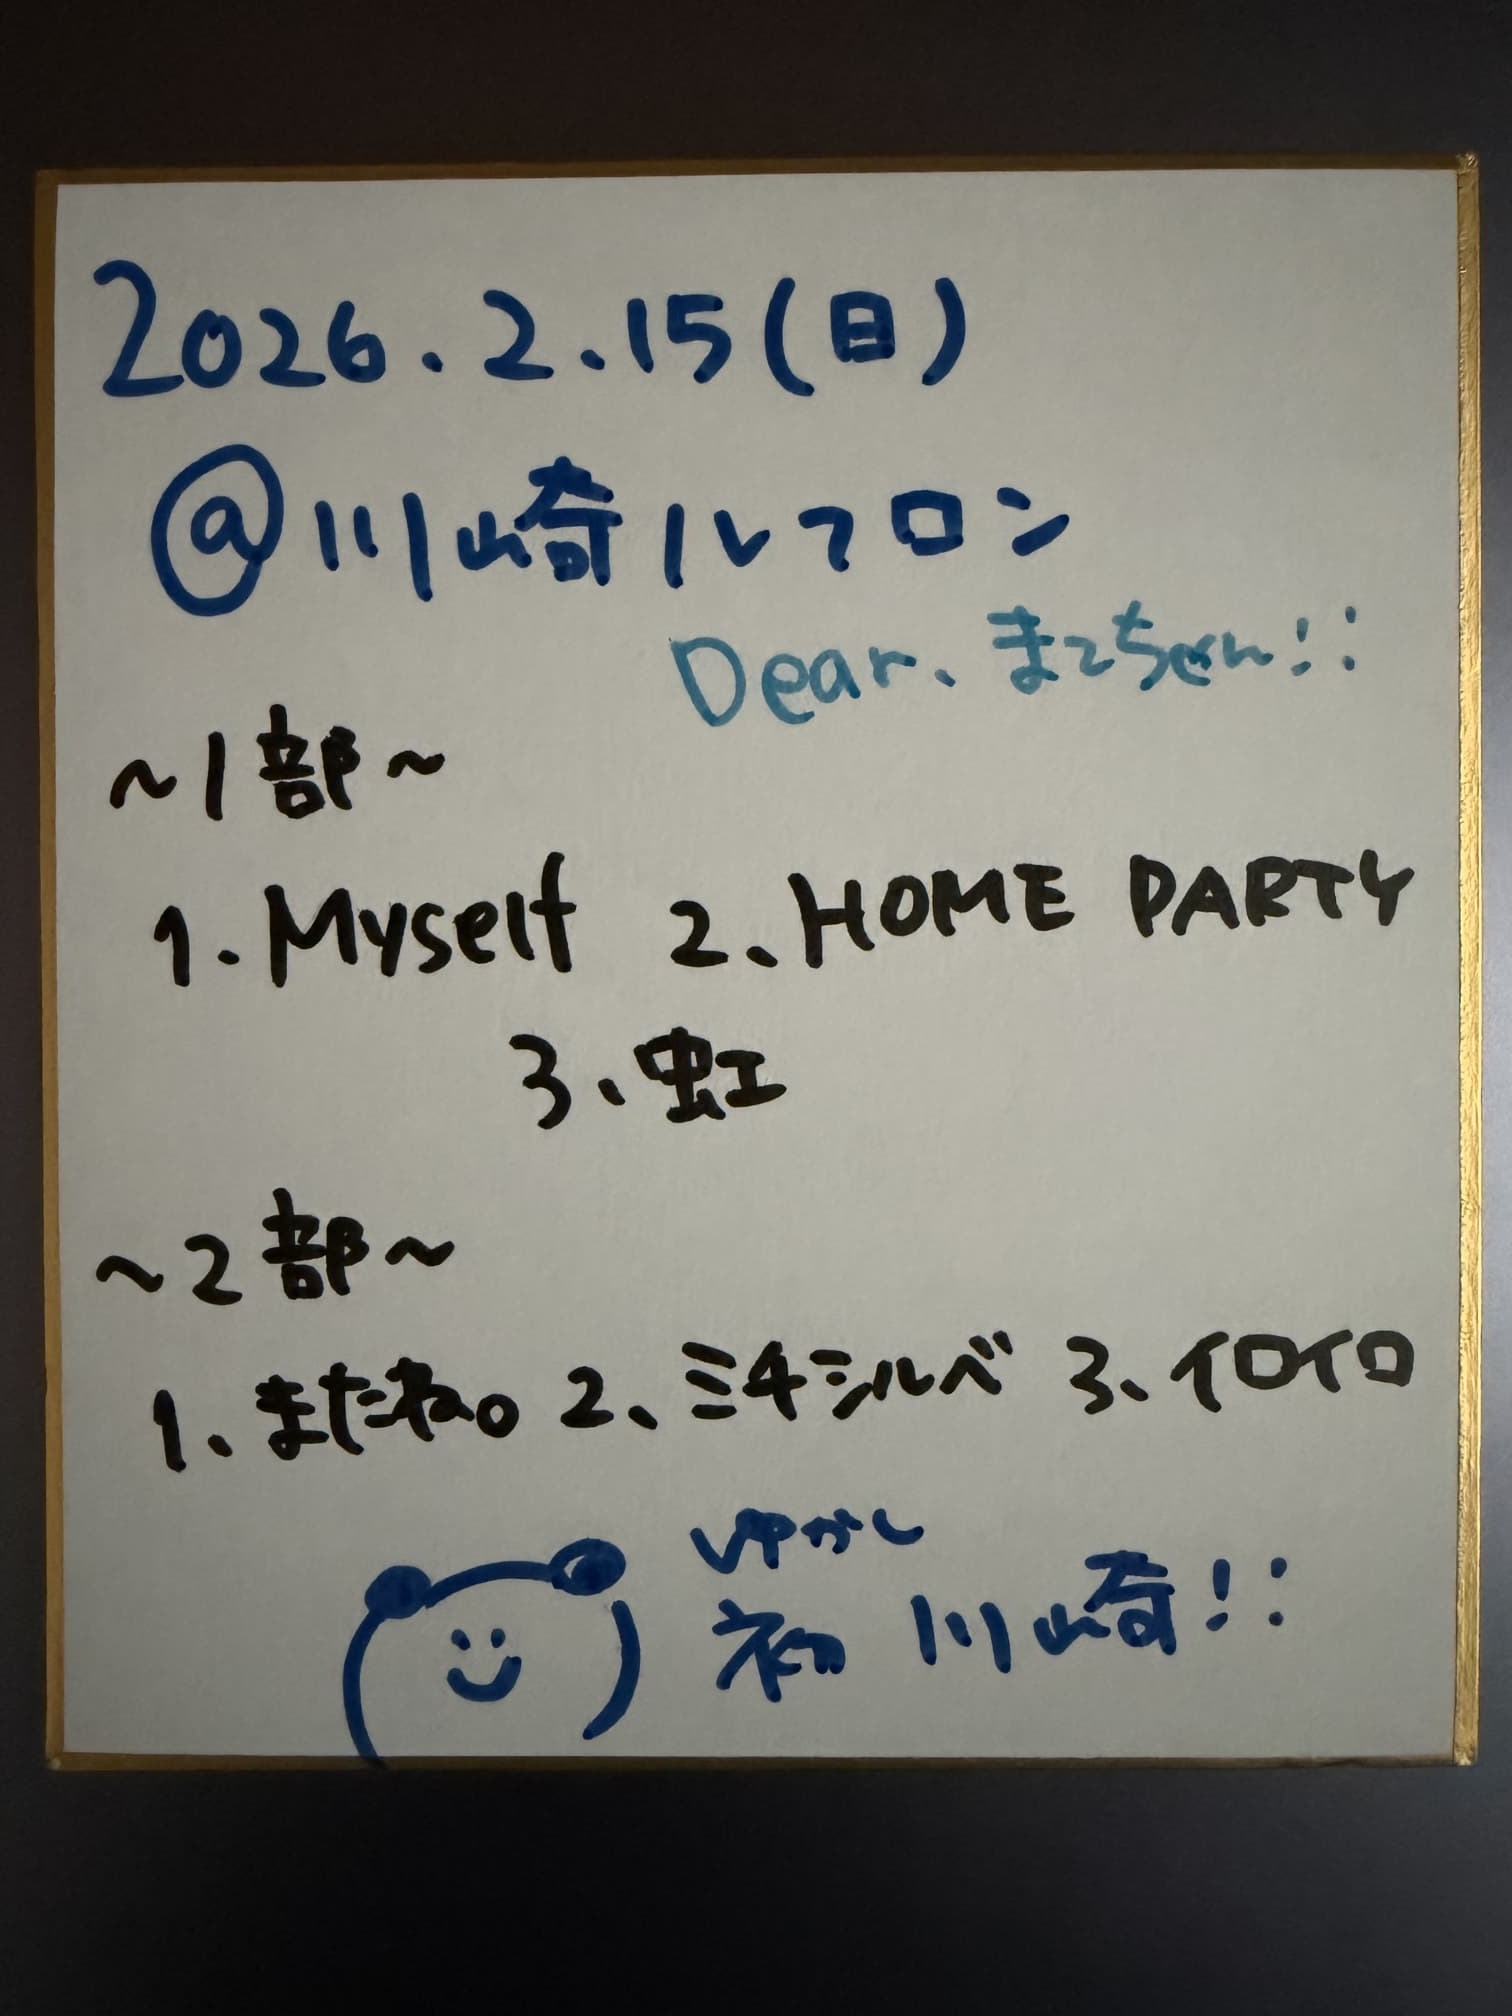 2026.2.15(日)
@川崎ルフロン
Dear、まこちゃん!!
~1部~
1.Myself 2、HOME PARTY
3、虹
~2部~
1、またね。2、ミチシルベ 3、イロイロ
ゆかし
初 川崎!!